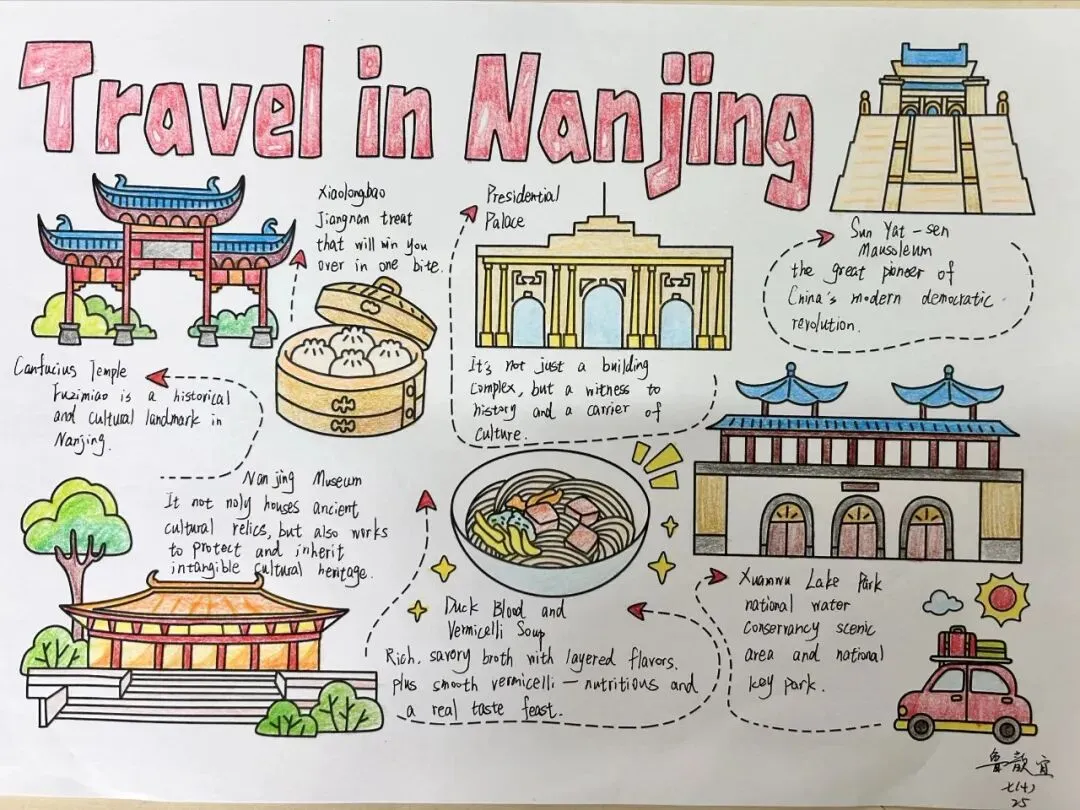 Travel in Nanjing
Xiaolongbao
Jiangnan treat
that will win you
over in one bite.
Presidential
Palace
It's not just a building
complex, but a witness to
history and a carrier of
culture.
Sun Yat-sen
Mausoleum
the great pioneer of
China's modern democratic
revolution.
Canfucius Temple
Fuzimiao is a historical
and cultural landmark in
Nanjing.
Nanjing Museum
It not noly houses ancient
cultural relics, but also works
to protect and inherit
intangible cultural heritage.
Duck Blood and
Vermicelli Soup
Rich, savory broth with layered flavors,
plus smooth vermicelli — nutritious and
a real taste feast.
Xuanwu Lake Park
national water
conservancy scenic
area and national
key park.
鲁歆宜
七(4)
25